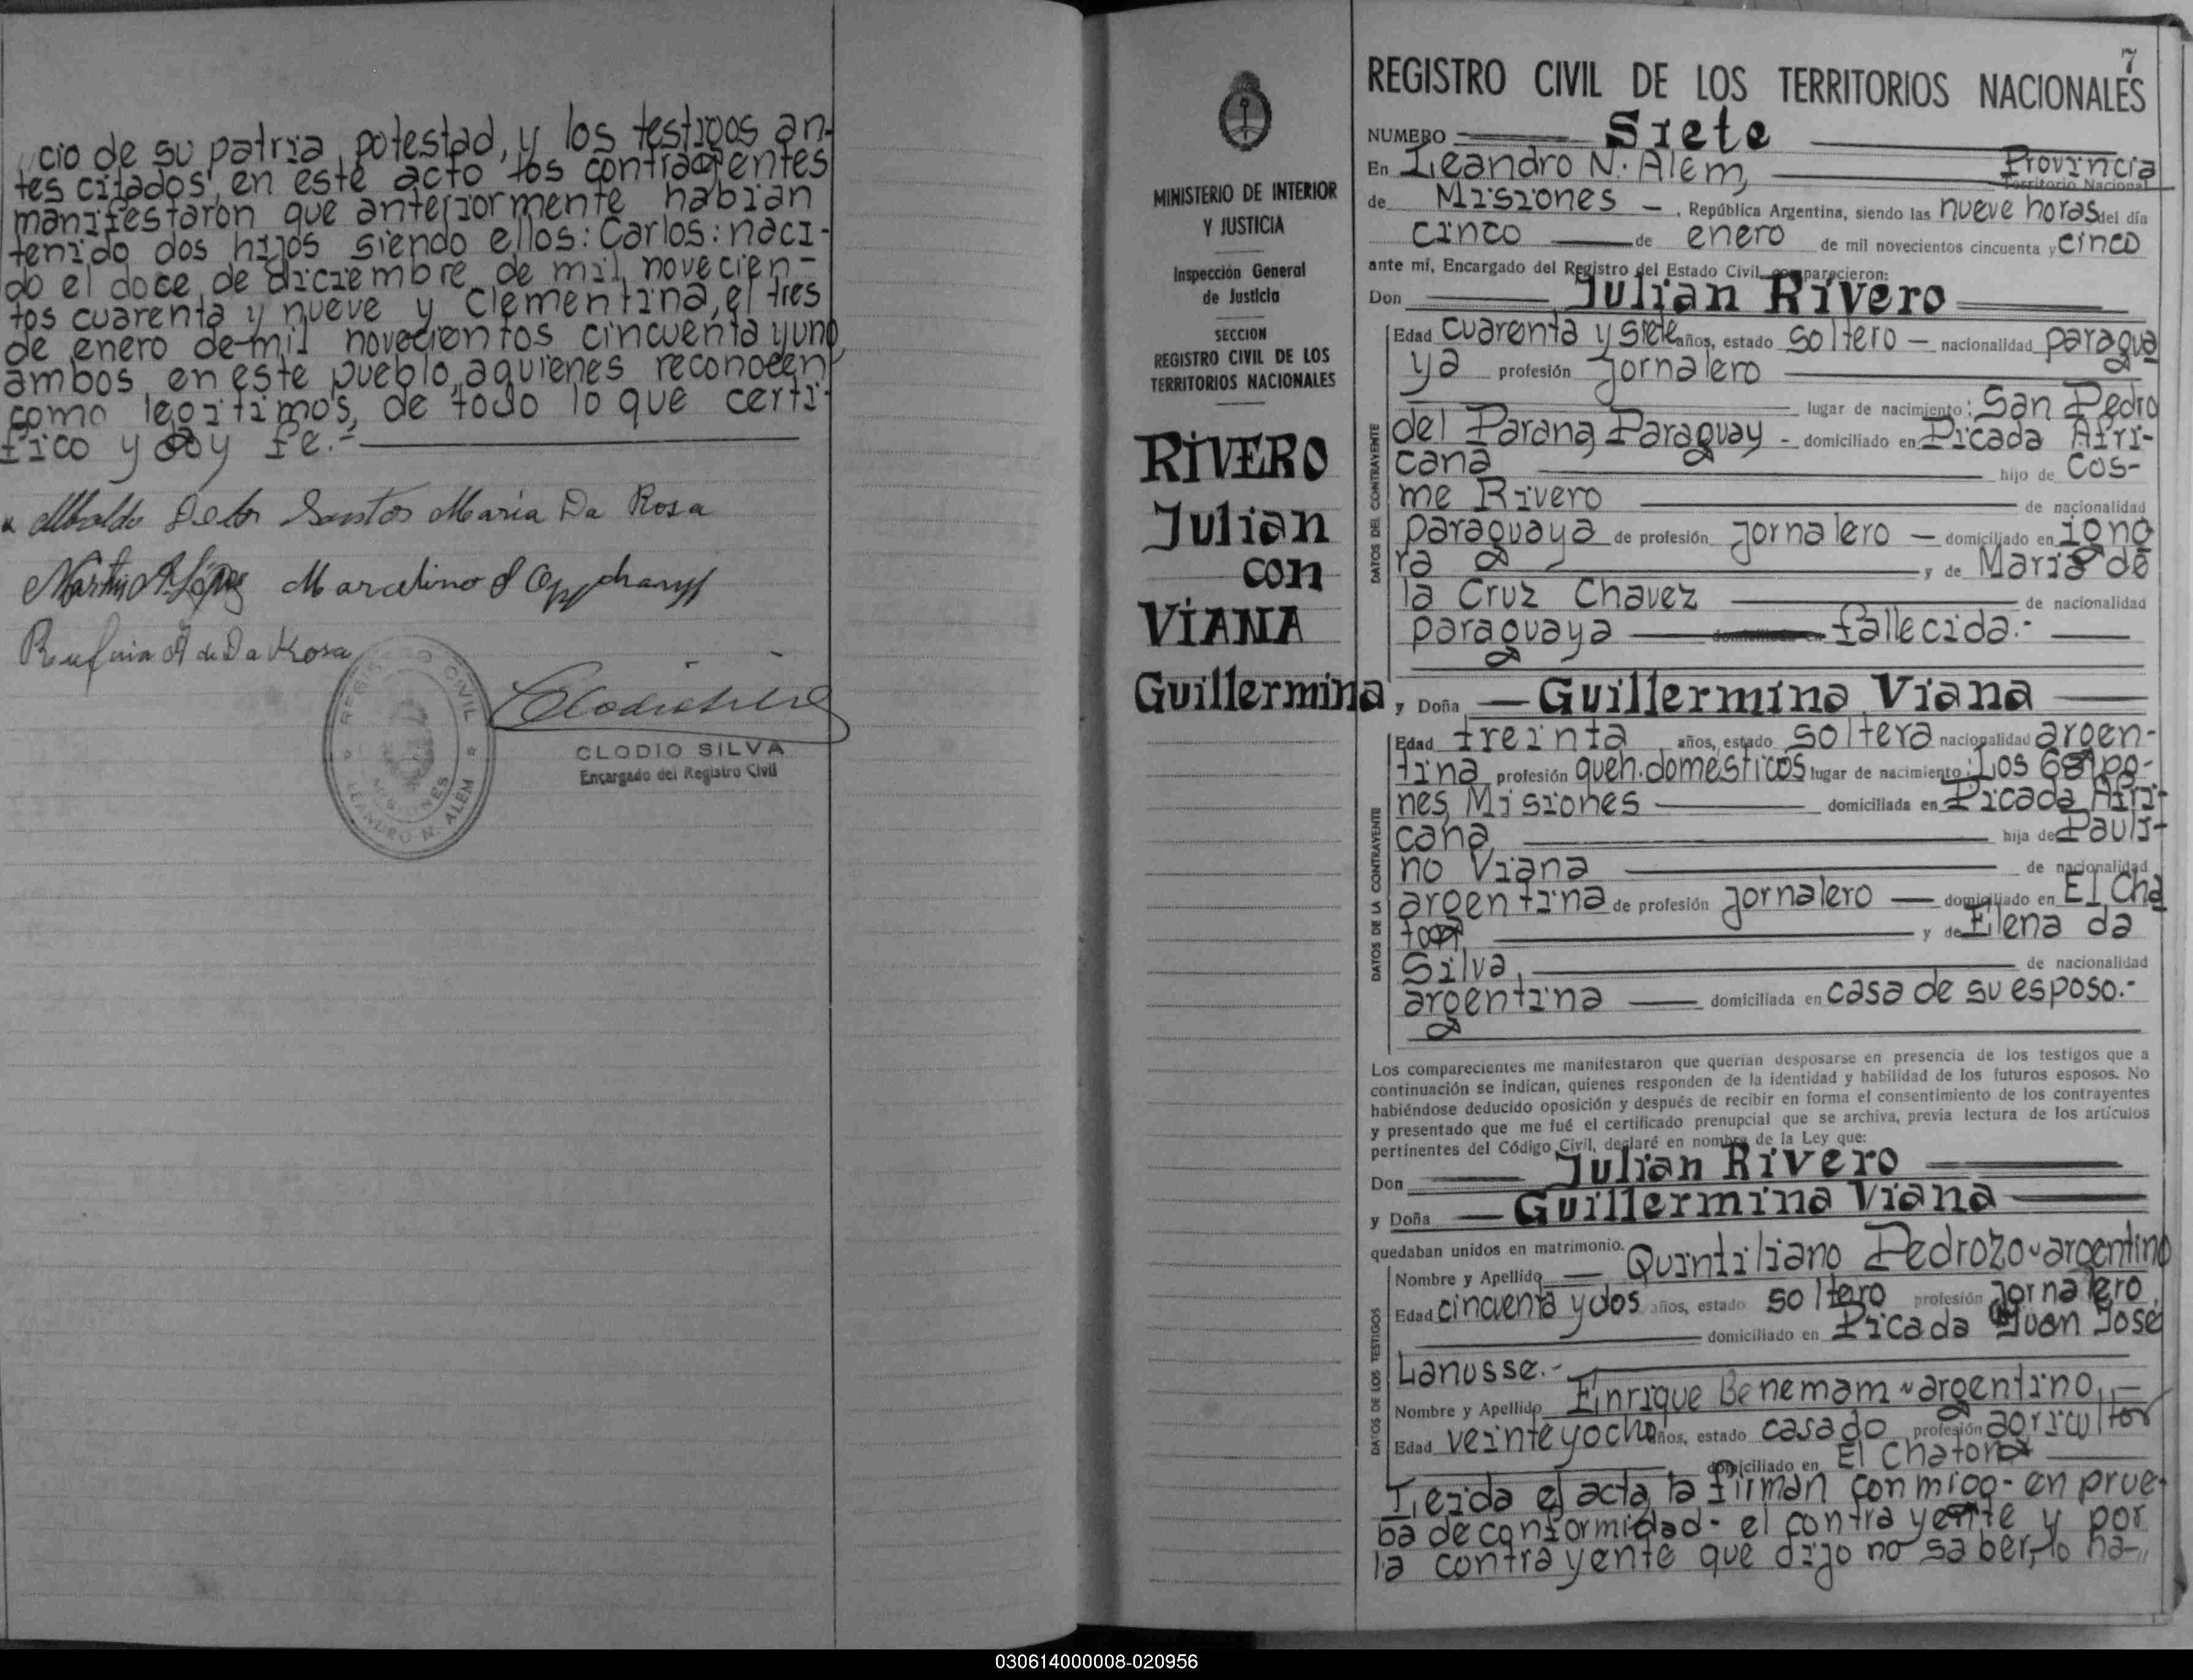 cio de su patria potestad, y los testigos an-
tes citados, en este acto los contragentes
manifestaron que anteriormente habian
tenido dos hijos siendo ellos: Carlos: naci-
do el doce de diciembre de mil novecien-
tos cuarenta y nueve y Clementina, el tres
de enero de mil novecientos cincuenta y uno
ambos en este pueblo, a quienes reconocen
como legitimos, de todo lo que certi-
fico y doy fe.-
Santos Maria Da Rosa
Martin López Marcelino
de Da Rosa
REGISTRO CIVIL
MISIONES
LEANDRO N. ALEM
CLODIO SILVA
Encargado del Registro Civil
7
MINISTERIO DE INTERIOR
Y JUSTICIA
Inspección General
de Justicia
SECCION
REGISTRO CIVIL DE LOS
TERRITORIOS NACIONALES
RIVERO
Julian
con
VIANA
Guillermina
REGISTRO CIVIL DE LOS TERRITORIOS NACIONALES
NUMERO Siete
En Leandro N. Alem, Provincia
Territorio Nacional
de Misiones -, República Argentina, siendo las nueve horas del día
cinco de enero de mil novecientos cincuenta y cinco
ante mí, Encargado del Registro del Estado Civil, comparecieron:
Don Julian Rivero
DATOS DEL CONTRAYENTE
Edad cuarenta y siete años, estado soltero - nacionalidad paragua
ya profesión jornalero
lugar de nacimiento: San Pedro
del Parana Paraguay - domiciliado en Picada Afri-
cana hijo de Cos-
me Rivero de nacionalidad
paraguaya de profesión jornalero - domiciliado en igno
ra y de Maria de
la Cruz Chavez de nacionalidad
paraguaya domiciliada en fallecida.-
y Doña - Guillermina Viana
DATOS DE LA CONTRAYENTE
Edad treinta años, estado soltera nacionalidad argen-
tina profesión queh. domésticos lugar de nacimiento: Los Galpo-
nes, Misiones domiciliada en Picada Afri-
cana, hija de Pauli-
no Viana de nacionalidad
argentina de profesión jornalero - domiciliado en El Cha
y de Elena da
Silva, de nacionalidad
argentina domiciliada en casa de su esposo.-
Los comparecientes me manifestaron que querían desposarse en presencia de los testigos que a
continuación se indican, quienes responden de la identidad y habilidad de los futuros esposos. No
habiéndose deducido oposición y después de recibir en forma el consentimiento de los contrayentes
y presentado que me fué el certificado prenupcial que se archiva, previa lectura de los artículos
pertinentes del Código Civil, declaré en nombre de la Ley que:
Don Julian Rivero
y Doña - Guillermina Viana
quedaban unidos en matrimonio.
DATOS DE LOS TESTIGOS
Nombre y Apellido - Quintiliano Pedrozo - argentino
Edad cincuenta y dos años, estado soltero profesión jornalero,
domiciliado en Picada Juan José
Lanusse.-
Nombre y Apellido Enrique Benemam - argentino,
Edad veinte y ocho años, estado casado profesión agricultor
domiciliado en El Chaton
Leida el acta, la firman conmigo - en prue-
ba de conformidad - el contrayente y por
la contrayente que dijo no saber, lo ha-
030614000008-020956